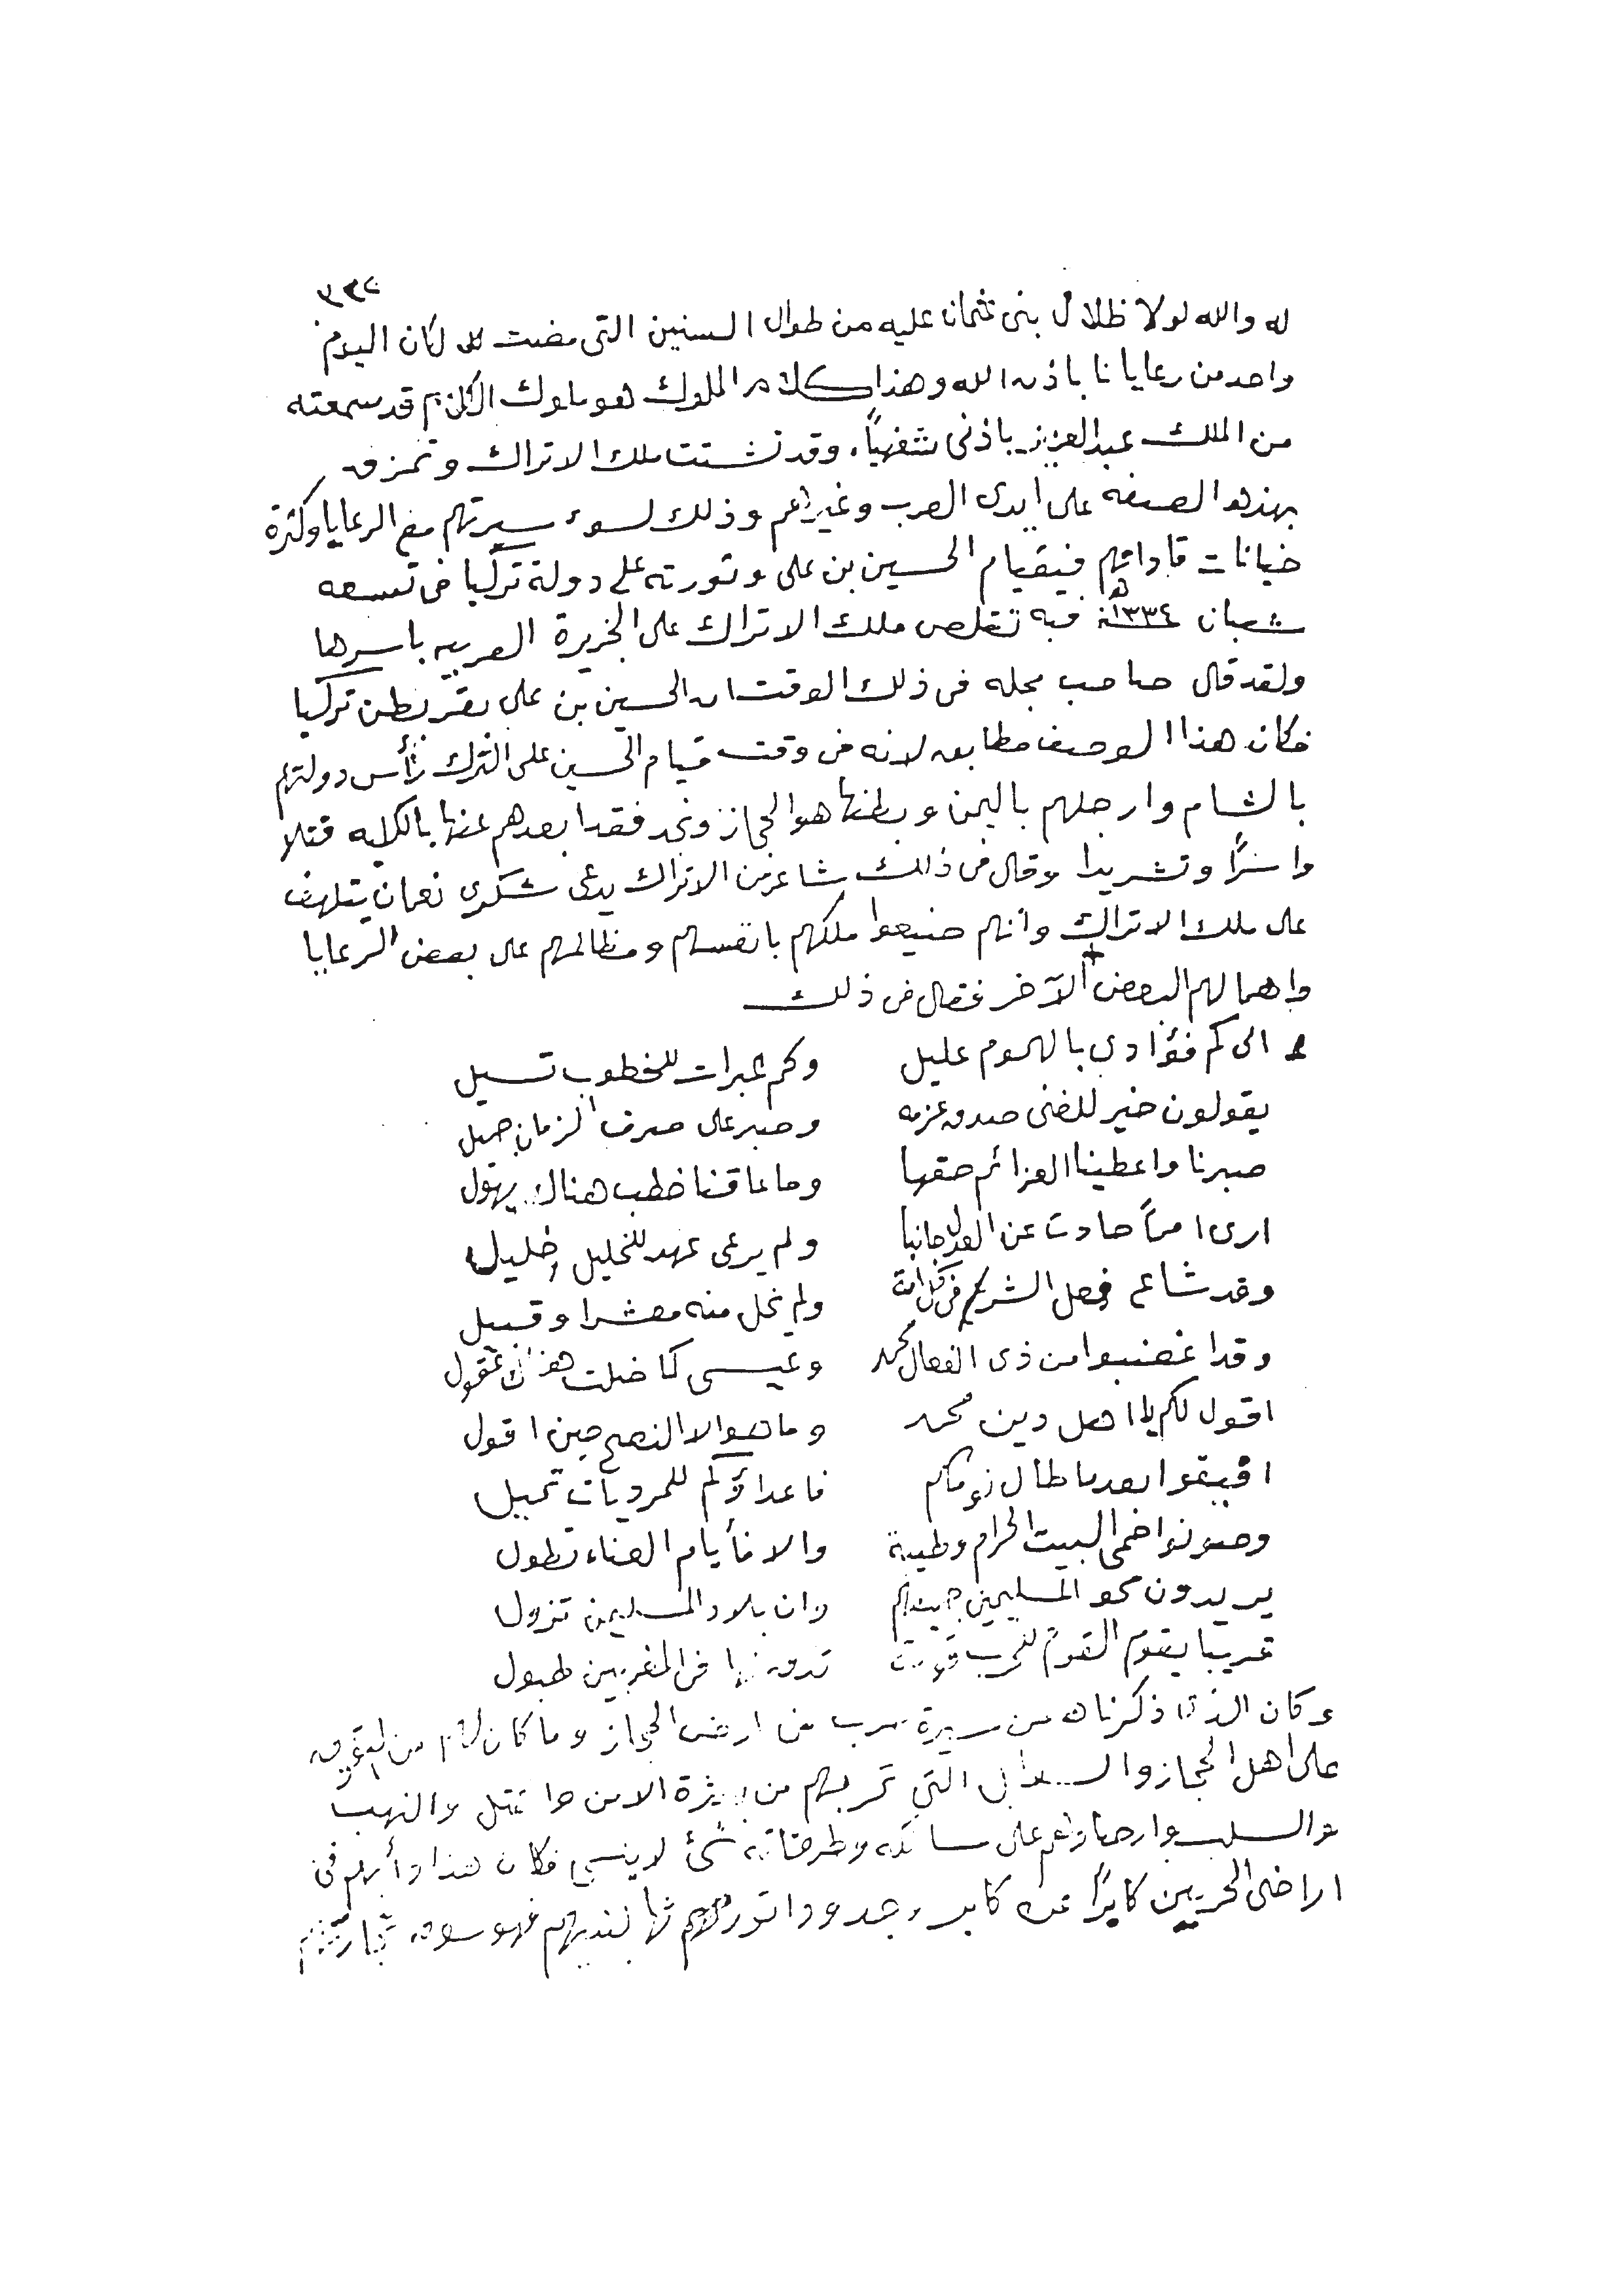 ٣٣٧
له والله لولا ظلال بنى عثمان عليه من طوال السنين التى مضت لكان اليوم
واحد من رعايانا باذن الله وهذا كلام الملوك هو ملوك الكلام قد سمعته
من الملك عبدالعزيز باذنى شفهياً، وقد تشتت ملك الاتراك وتمزق
بهذه الصفه على ايدى العرب وغيرهم وذلك لسوء سيرتهم مع الرعايا وكثرة
خيانات قاداتهم فبقيام الحسين بن على وثورته على دولة تركيا فى تسعه
شعبان ١٣٣٤هـ فبه تقلص ملك الاتراك على الجزيرة العربيه باسرها
ولقد قال صاحب مجله فى ذلك الوقت ان الحسين بن على بقر بطن تركيا
فكان هذا الوصف مطابق لانه فى وقت قيام الحسين على الترك رأس دولتهم
بالشام وارجلهم باليمن وبطنها هو الحجاز ونجد فقد ابعدهم عنها بالكليه قتلا
واسراً وتشريدا وقال فى ذلك شاعر من الاتراك يدعى شكرى نعمان يتلهف
على ملك الاتراك وانهم ضيعوا ملكهم بانفسهم ومظالمهم على بعض الرعايا
واهمالهم البعض الآخر فقال فى ذلك
الى كم فؤادى بالهموم عليل وكم عبرات للخطوب تسيل
يقولون خير للفتى صدق عزمه وصبر على صرف الزمان جميل
صبرنا واعطينا العزائم حقها وما عاقنا خطب هناك يهول
ارى امماً حادت عن العدل جانبا ولم يرعى عهد للخليل خليل
وقد شاع فعل الشر فى كل امة ولم يخل منه معشرا وقبيل
وقد اغضبوا من ذى الفعال محمد وعيسى كما ضلت هناك عقول
اقول لكم يا اهل دين محمد وما هو الا النصح حين اقول
افيقوا بعد ما طال نومكم فاعداؤكم للمرديات تميل
وصونوا حمى البيت الحرام وطيبة والا فأيام العناء تطول
يريدون محو المسلمين جميعهم وان بلاد المسلمين تزول
قريبا يقوم القوم للحرب تدق لها فى المغربين طبول
وكان الذى ذكرناه من سيرة حرب فى ارض الحجاز وما كان لهم من
على اهل الحجاز والـ التى تمر بهم من الامن والقتل والنهب
والسلب وارصادهم على سالكه وطرقاته شئ لا ينسى فكان هذا دأبهم فى
اراضى الحربين كابراً عن كابر وجدود